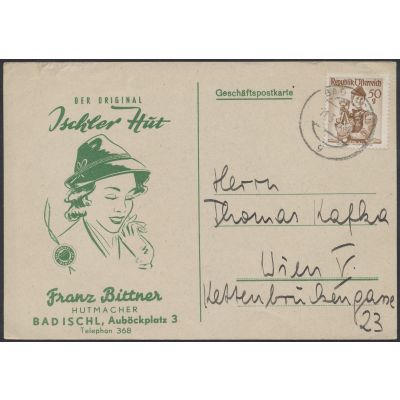 DER ORIGINAL
Ischler Hut
Franz Bittner
HUTMACHER
BAD ISCHL, Auböckplatz 3
Telephon 368
Geschäftspostkarte
Republik Österreich
50
g
BAD
Herrn
Thomas Kafka
Wien V.
Kettenbrückengasse
23